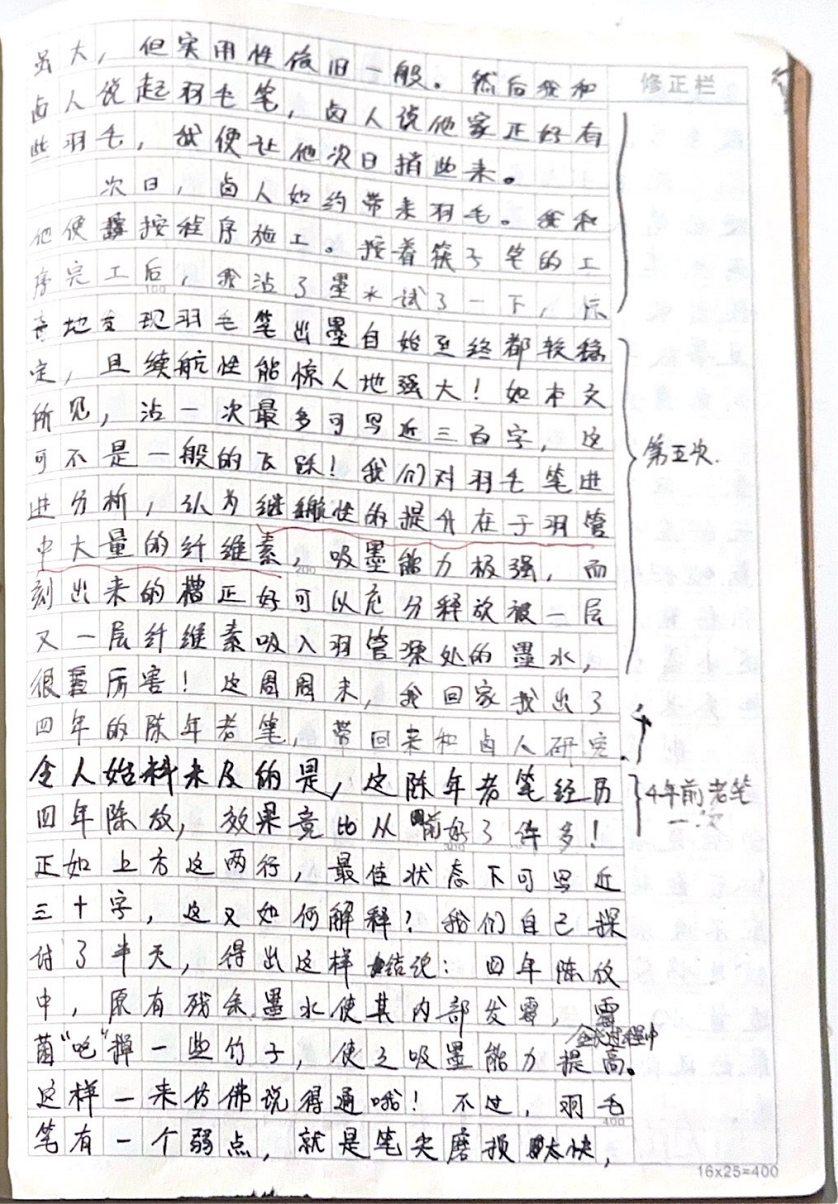 虽大，但实用性依旧一般。然后我和
修正栏
卤人说起羽毛笔，卤人说他家正好有
些羽毛，我便让他次日捎些来。
次日，卤人如约带来羽毛。我和
他便按程序施工。按着筷子笔的工
序完工后，我沾了墨水试了一下，惊
奇地发现羽毛笔出墨自始至终都较稳
定，且续航性能惊人地强大！如本文
所见，沾一次最多可写近三百字，这
可不是一般的飞跃！我们对羽毛笔进
第五次.
进分析，认为继续性的提升在于羽管
中大量的纤维素，吸墨能力极强，而
刻出来的槽正好可以充分释放被一层
又一层纤维素吸入羽管深处的墨水，
很厉害！这周周末，我回家找出了
四年的陈年老笔，带回来和卤人研究.
令人始料未及的是，这陈年老笔经历
4年前老笔
一次
四年陈放，效果竟比从前好了许多！
正如上方这两行，最佳状态下可写近
三十字，这又如何解释？我们自己探
讨了半天，得出这样结论：四年陈放
中，原有残余墨水使其内部发霉，霉
菌“吃”掉一些竹子，使之吸墨能力提高。
这样一来仿佛说得通哦！不过，羽毛
笔有一个弱点，就是笔尖磨损太快，
100
200
300
400
16x25=400